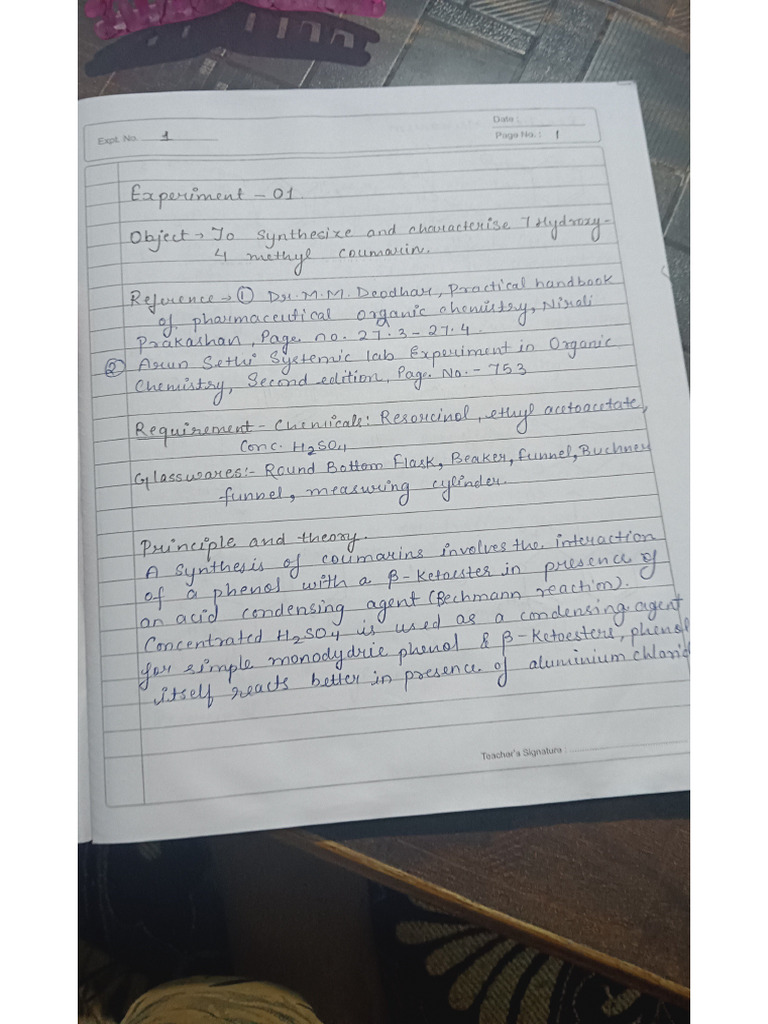 Expt. No. 1
Date :
Page No. : 1
Experiment - 01
Object → To synthesize and characterise 7 Hydroxy-
4 methyl coumarin.
Reference → ① Dr. M.M. Deodhar, Practical handbook
of pharmaceutical organic chemistry, Nirali
Prakashan, Page no. 27.3 - 27.4.
② Arun Sethi Systemic lab Experiment in Organic
Chemistry, Second edition, Page No. - 753
Requirement - Chemicals: Resorcinol, ethyl acetoacetate,
Conc. H₂SO₄
Glasswares:- Round Bottom Flask, Beaker, funnel, Buchner
funnel, measuring cylinder.
Principle and theory.
A synthesis of coumarins involves the interaction
of a phenol with a β-Ketoester in presence of
an acid condensing agent (Bechmann reaction).
Concentrated H₂SO₄ is used as a condensing agent
for simple monodydric phenol & β-Ketoesters, phenol
itself reacts better in presence of aluminium chlorid
Teacher's Signature :